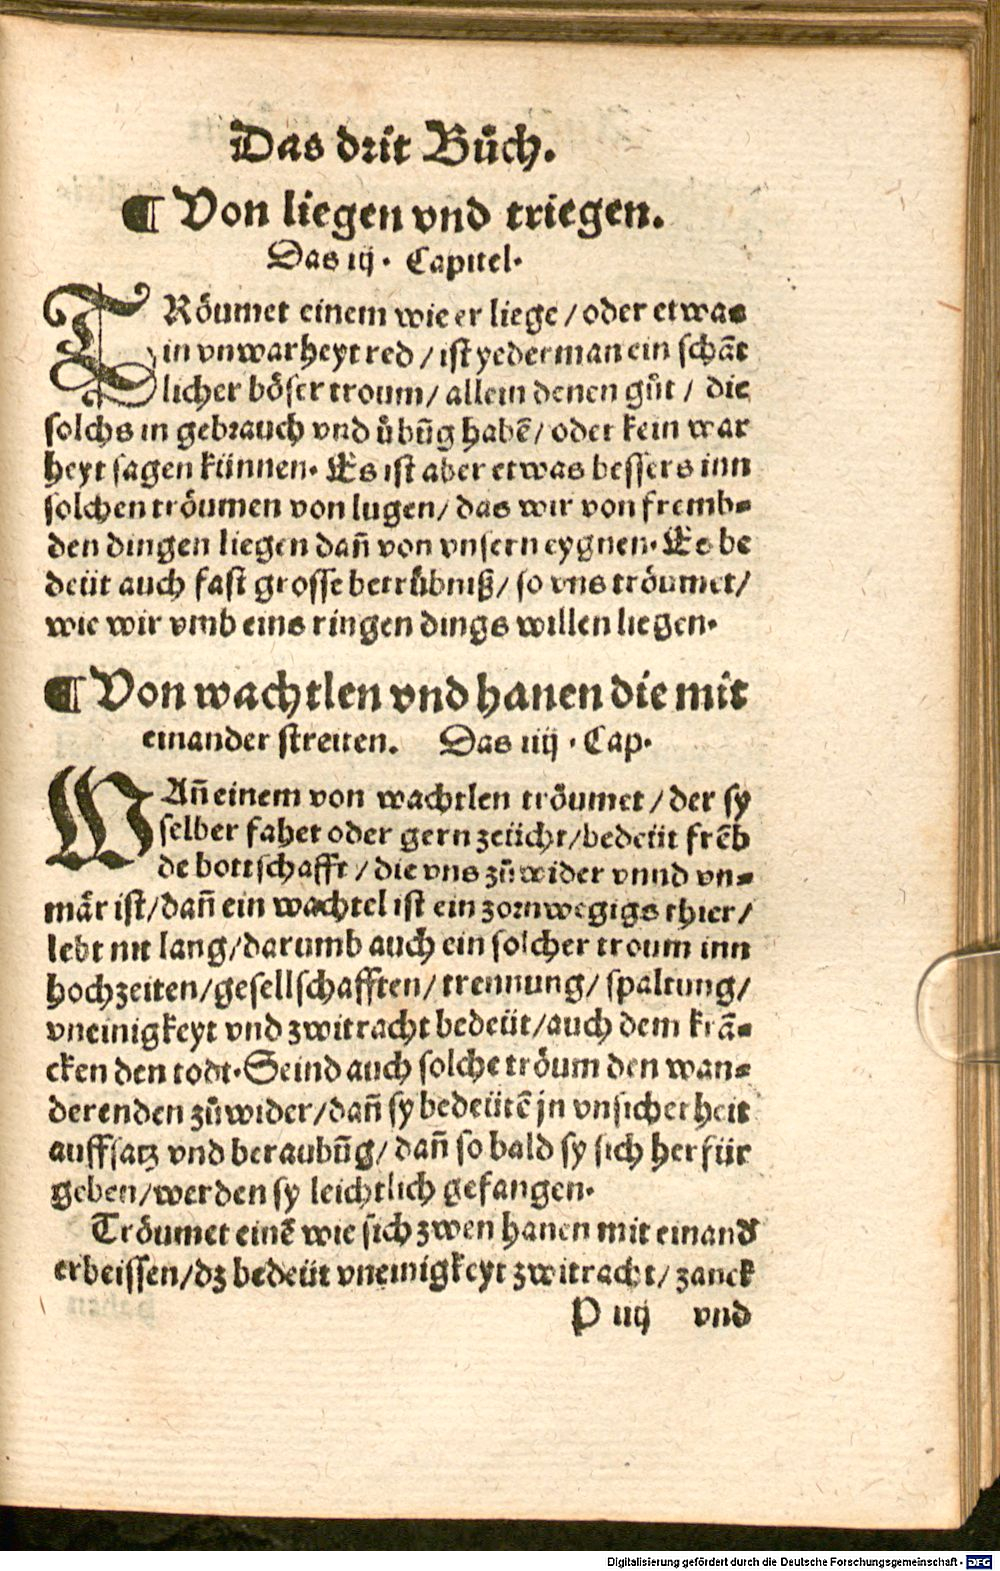 Das drit Bůch.
¶ Von liegen vnd triegen.
Das iij. Capitel.
TRöumet einem wie er liege / oder etwa-
in vnwarheyt red / ist yederman ein schãt
licher böser troum / allein denen gůt / die
solchs in gebrauch vnd ůbũg habẽ / oder kein war
heyt sagen künnen. Es ist aber etwas bessers inn
solchen tröumen von lugen / das wir von fremb-
den dingen liegen dañ von vnsern eygnen. Es be
deüt auch fast grosse betrůbniß / so vns tröumet /
wie wir vmb eins ringen dings willen liegen.
¶ Von wachtlen vnd hanen die mit
einander streiten. Das iiij. Cap.
WAñ einem von wachtlen tröumet / der sy
selber fahet oder gern zeücht / bedeüt frẽb
de bottschafft / die vns zůwider vnnd vn-
mär ist / dañ ein wachtel ist ein zornwegigs thier /
lebt nit lang / darumb auch ein solcher troum inn
hochzeiten / gesellschafften / trennung / spaltung /
vneinigkeyt vnd zwitracht bedeüt / auch dem krã-
cken den todt. Seind auch solche tröum den wan-
derenden zůwider / dañ sy bedeütẽ jn vnsicherheit
auffsatz vnd beraubũg / dañ so bald sy sich herfür
geben / werden sy leichtlich gefangen.
Tröumet einẽ wie sich zwen hanen mit einand
erbeissen / dz bedeüt vneinigkeyt zwitracht / zanck
P iiij vnd
Digitalisierung gefördert durch die Deutsche Forschungsgemeinschaft - DFG